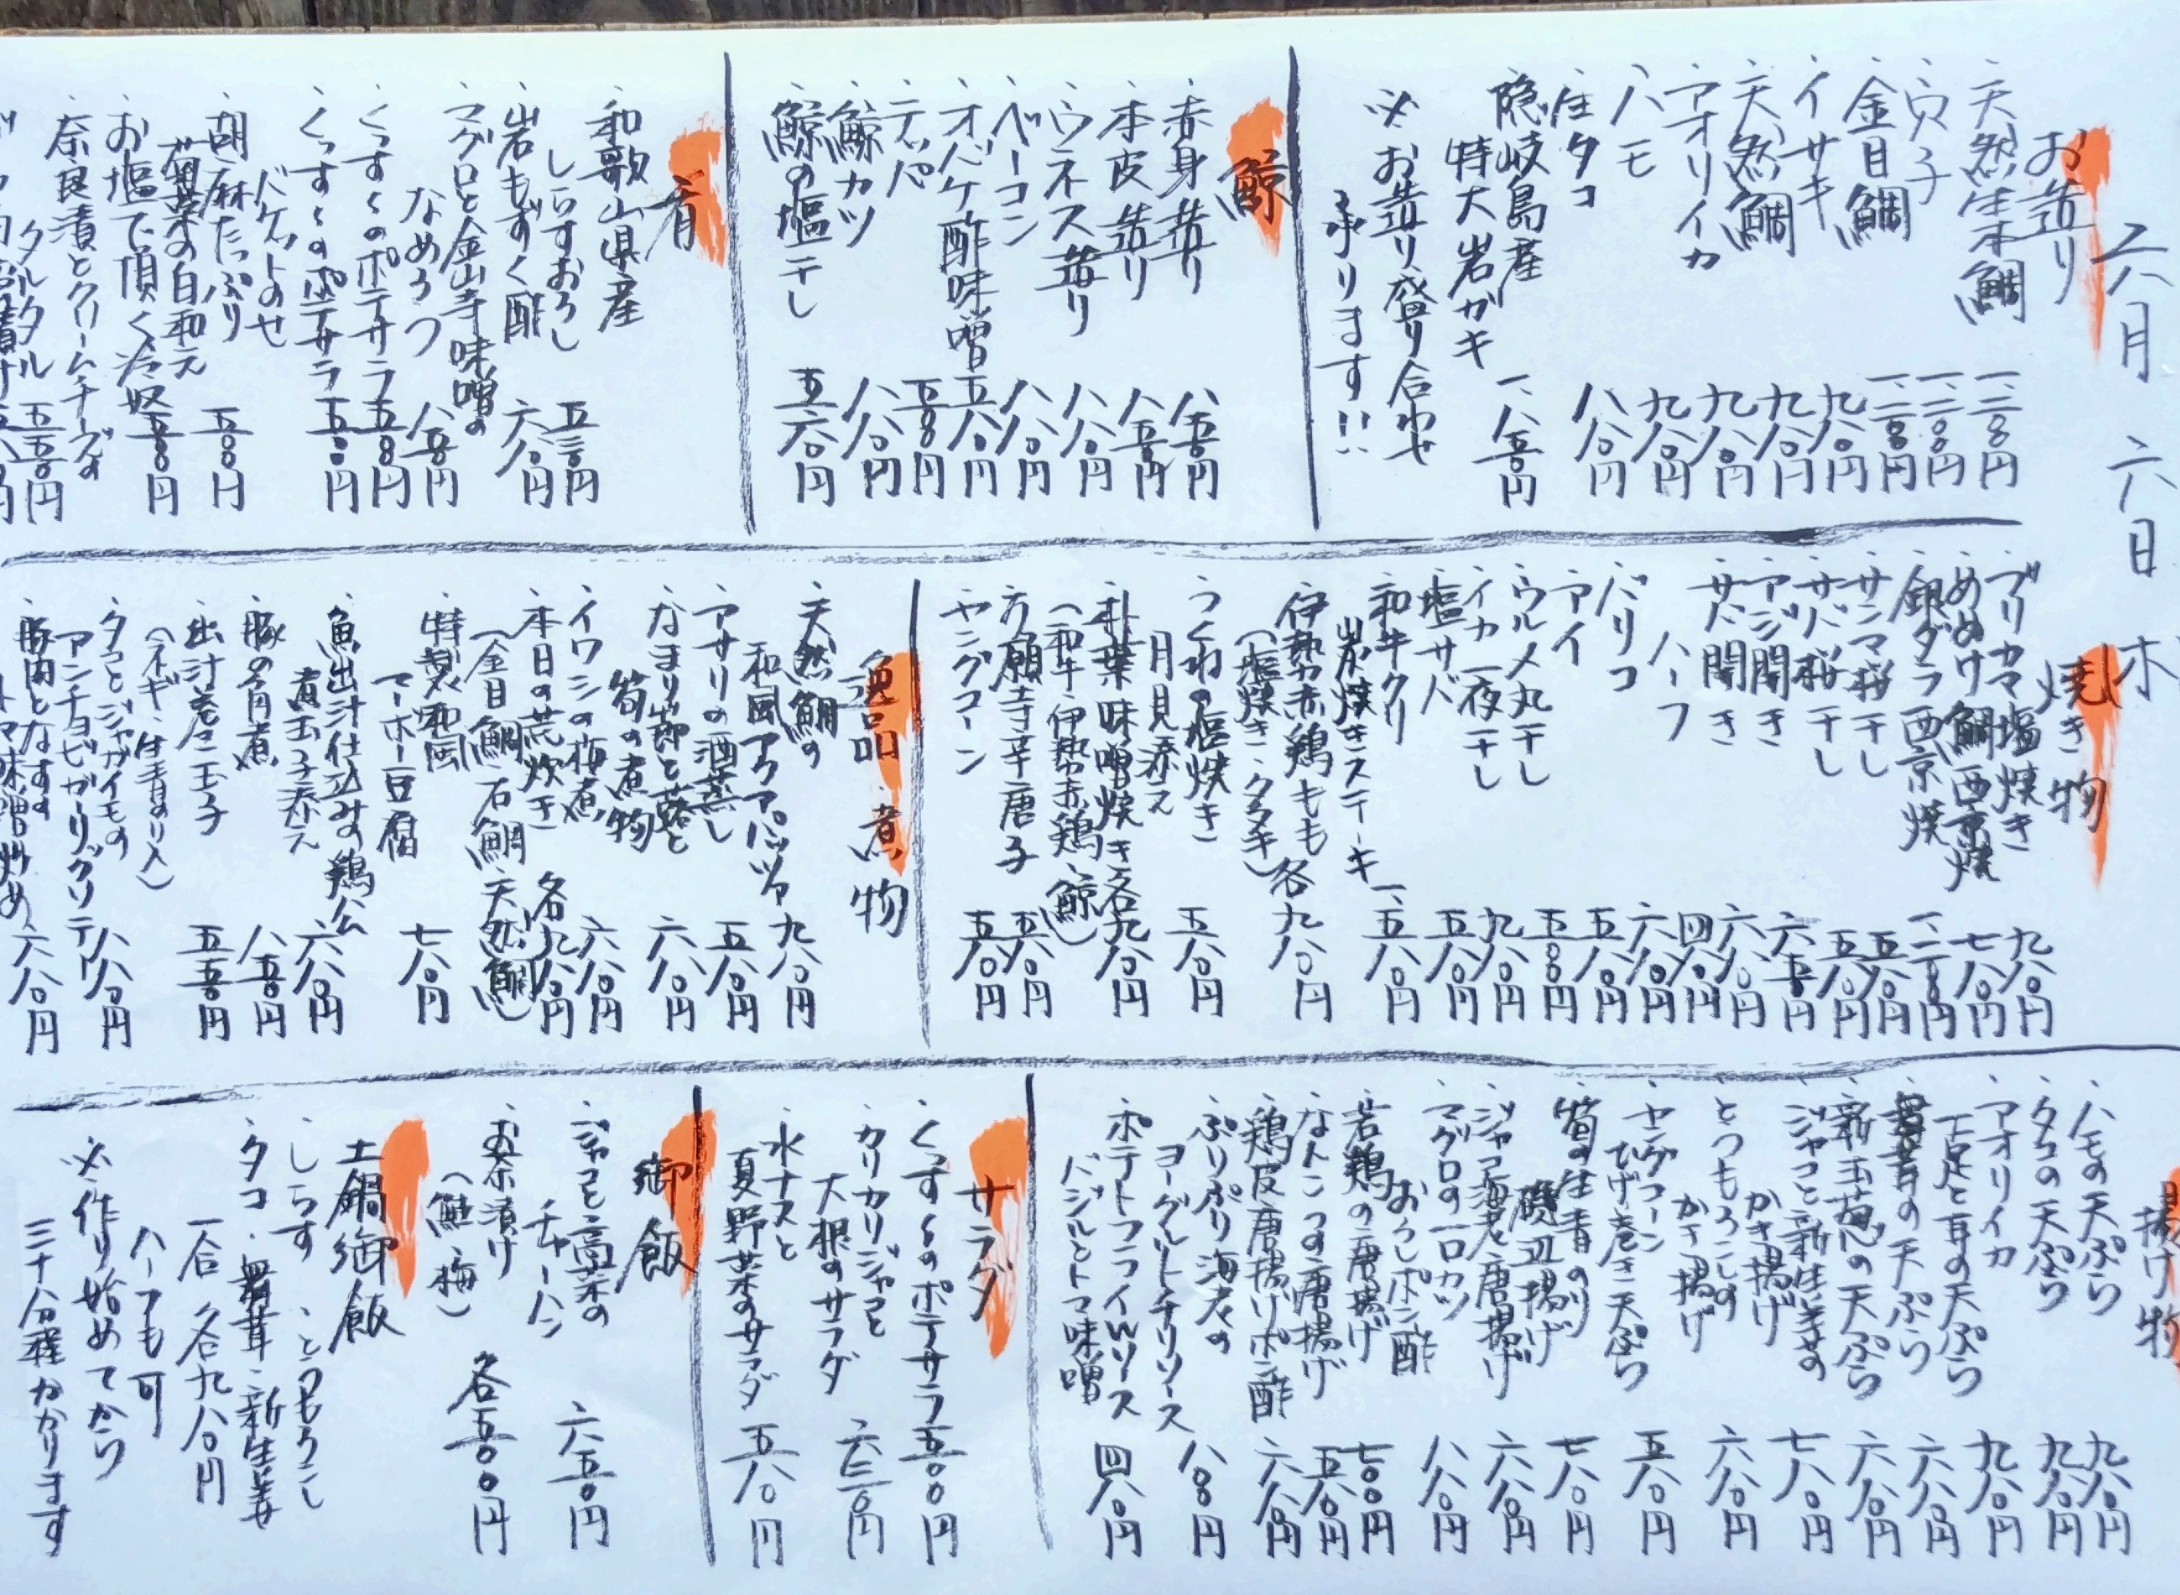 六月 六日 木
お造り
・天然生本鮪 一、二八〇円
・穴子
・金目鯛
・イサキ 九八〇円
・天然鯛 九八〇円
・アオリイカ 九八〇円
・ハモ 九八〇円
・生タコ 八八〇円
・隠岐島産
特大岩ガキ 一、八五〇円
※お造り盛り合わせ
承ります!!
鯨
・赤身造り 八五〇円
・本皮造り 八五〇円
・ウネス造り 八八〇円
・ベーコン 八八〇円
・オバケ酢味噌 五八〇円
・テッパ 五八〇円
・鯨カツ 八八〇円
・鯨の塩干し 五六〇円
肴
・和歌山県産
しらすおろし 五三〇円
・岩もずく酢 六八〇円
・マグロと金山寺味噌の
なめろう 八五〇円
・くっすぅのポテサラ 五五〇円
・くっすぅのポテサラ
バケットのせ 五五〇円
・胡麻たっぷり
菊菜の白和え 五八〇円
・お塩で頂く冷奴 五五〇円
・奈良漬とクリームチーズの
タルタル 五五〇円
焼き物
・ブリカマ塩焼き 九八〇円
・めぬけ鯛西京焼 七八〇円
・銀ダラ西京焼 一、二八〇円
・サンマ桜干し 五八〇円
・サバ桜干し 五八〇円
・アジ開き 六五〇円
・サバ開き 六八〇円
ハーフ 四八〇円
・バリコ 六八〇円
・アイ 五八〇円
・ウルメ丸干し 五五〇円
・イカ一夜干し 九八〇円
・塩サバ 五八〇円
・和牛クリ
炭焼きステーキ 一、五八〇円
・伊勢赤鶏もも 各九八〇円
（塩焼き・タタキ）
・つくねの塩焼き
月見添え 五八〇円
・朴葉味噌焼き 各九八〇円
（和牛・伊勢赤鶏・鯨）
・万願寺辛唐子 五八〇円
・ヤングコーン 五八〇円
逸品 煮物
・天然鯛の
和風アクアパッツァ 九八〇円
・アサリの酒蒸し 五八〇円
・なまり節と蕗と
筍の煮物 六八〇円
・イワシの梅煮 六八〇円
・本日の荒炊き 各九八〇円
（金目鯛・石鯛・天然鯛）
・特製和風
マーボー豆腐 七八〇円
・魚出汁仕込みの鶏公
煮玉子添え 六八〇円
・豚の角煮 八五〇円
・出汁巻き玉子 五五〇円
（ネギ・生青のり入）
・タコとジャガイモの
アンチョビガーリックソテー 八八〇円
・豚肉となすの
トマト味噌炒め 六八〇円
揚げ物
・ハモの天ぷら 九八〇円
・タコの天ぷら 九八〇円
・アオリイカ
下足と耳の天ぷら 九八〇円
・舞茸の天ぷら 六八〇円
・新玉葱の天ぷら 六八〇円
・ジャコと新生姜の
かき揚げ 七八〇円
・とうもろこしの
かき揚げ 六八〇円
・ヤングコーン
ひげ巻き天ぷら 五八〇円
・筍の生青のり
磯辺揚げ 七八〇円
・ジャコ海老唐揚げ 六八〇円
・マグロの一口カツ
おろしポン酢 八八〇円
・若鶏の唐揚げ 七〇〇円
・なんこつの唐揚げ 五八〇円
・鶏皮唐揚げポン酢 六八〇円
・ぷりぷり海老の
ヨーグルトチリソース 八〇〇円
・ポテトフライWソース
バジルとトマト味噌 四八〇円
サラダ
・くっすぅのポテサラ 五五〇円
・カリカリジャコと
大根のサラダ 六三〇円
・水ナスと
夏野菜のサラダ 五八〇円
御飯
・ジャコと高菜の
チャーハン 六五〇円
・お茶漬け 各五〇〇円
（鮭・梅）
土鍋御飯
・しらす ・とうもろこし
・タコ ・舞茸・新生姜
一合 各九八〇円
ハーフも可
※作り始めてから
三十分程かかります